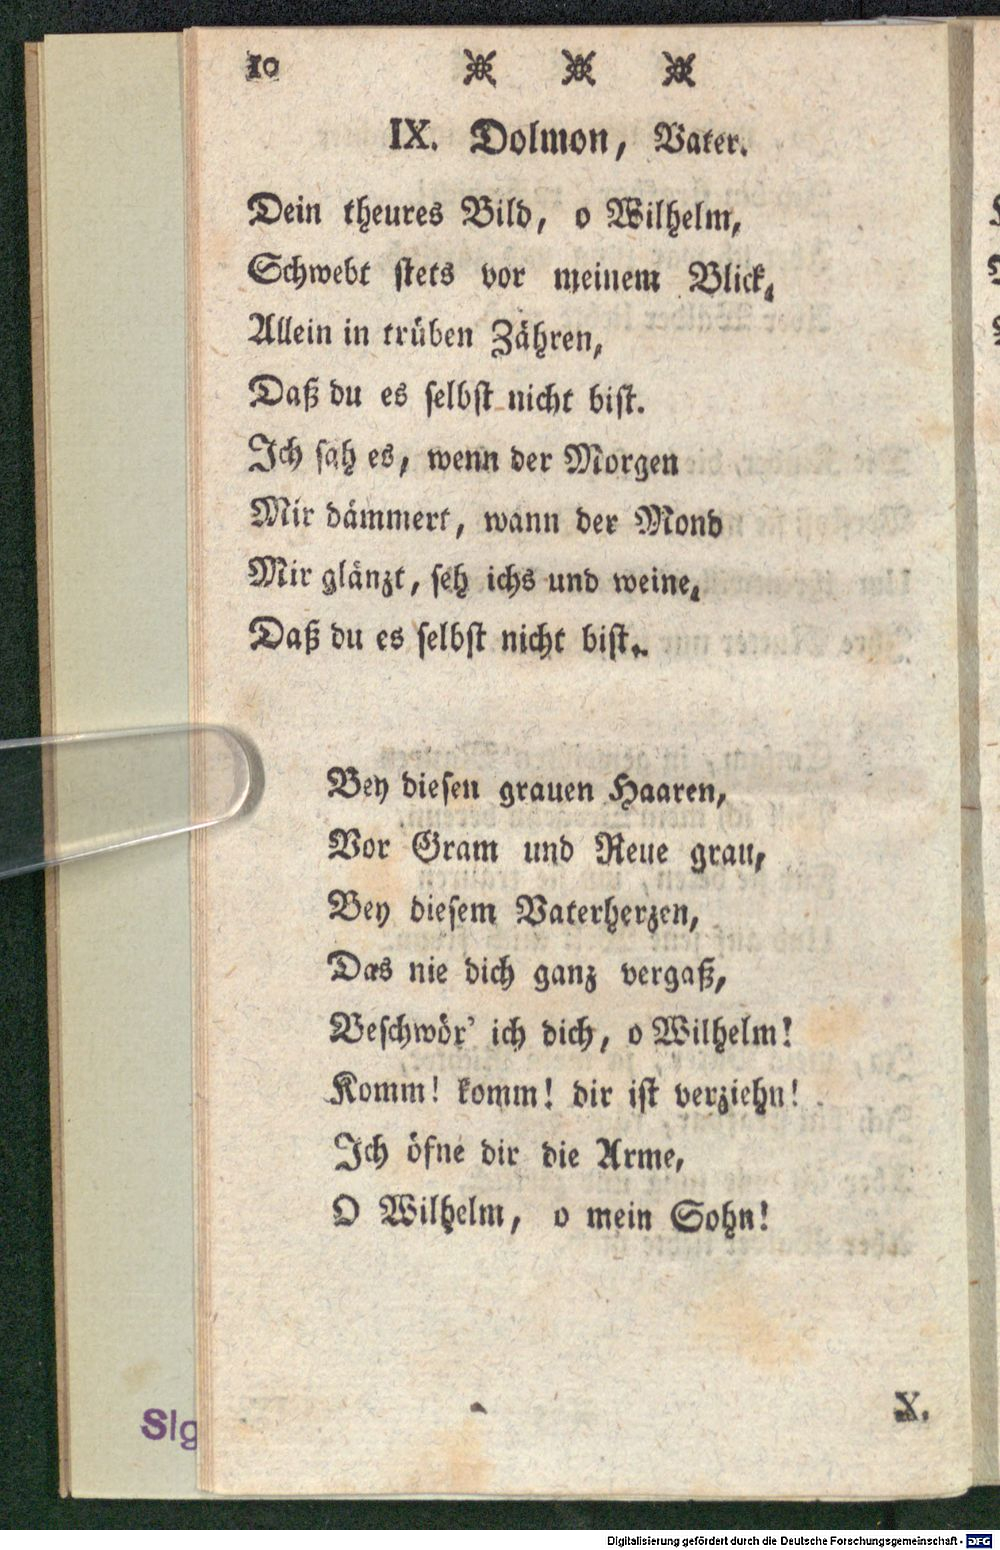 10
IX. Dolmon, Vater.
Dein theures Bild, o Wilhelm,
Schwebt stets vor meinem Blick,
Allein in trüben Zähren,
Daß du es selbst nicht bist.
Ich sah es, wenn der Morgen
Mir dämmert, wann der Mond
Mir glänzt, seh ichs und weine,
Daß du es selbst nicht bist.
Bey diesen grauen Haaren,
Vor Gram und Reue grau,
Bey diesem Vaterherzen,
Das nie dich ganz vergaß,
Beschwör' ich dich, o Wilhelm!
Komm! komm! dir ist verziehn!
Ich öfne dir die Arme,
O Wilhelm, o mein Sohn!
X.
Slg
Digitalisierung gefördert durch die Deutsche Forschungsgemeinschaft - DFG